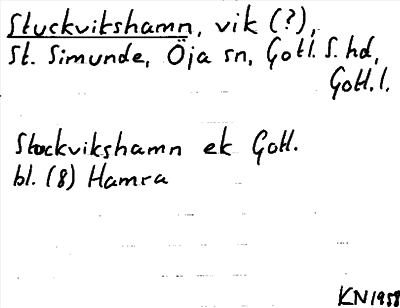 Stuckvikshamn, vik (?),
St. Simunde, Öja sn, Gotl. S. hd,
Gotl. l.
Stockvikshamn ek Gotl.
bl. (8) Hamra
KN 1958